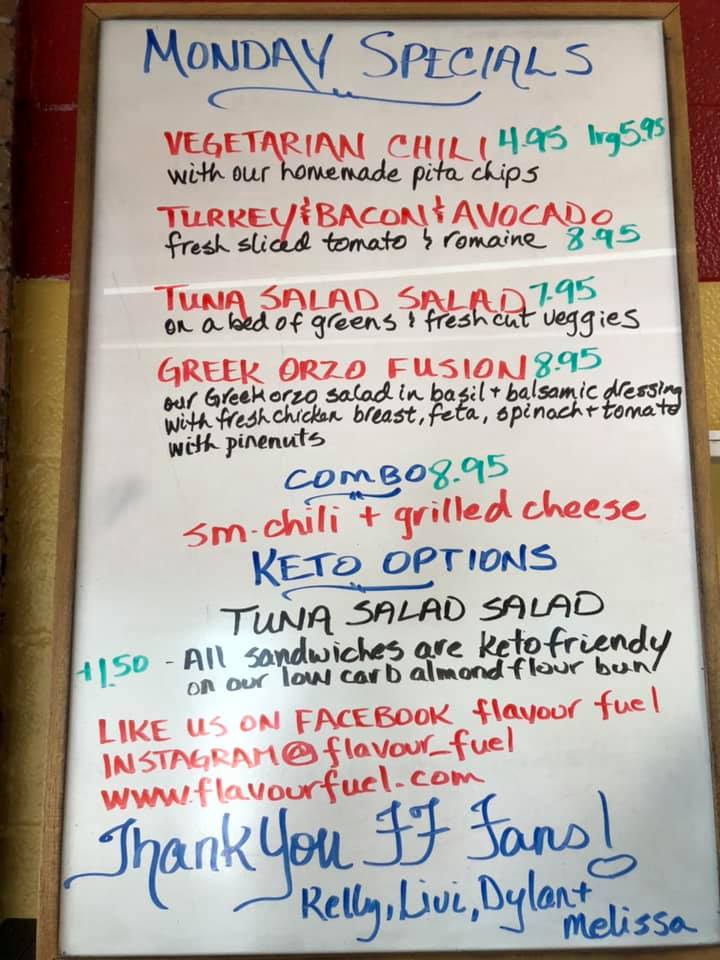 MONDAY SPECIALS
VEGETARIAN CHILI 4.95 lrg 5.95
with our homemade pita chips
TURKEY & BACON & AVOCADO
fresh sliced tomato & romaine 8.95
TUNA SALAD SALAD 7.95
on a bed of greens & fresh cut veggies
GREEK ORZO FUSION 8.95
our Greek orzo salad in basil + balsamic dressing
with fresh chicken breast, feta, spinach + tomato
with pinenuts
COMBO 8.95
sm. chili + grilled cheese
KETO OPTIONS
TUNA SALAD SALAD
+1.50 - All sandwiches are keto friendy
on our low carb almond flour bun
LIKE US ON FACEBOOK flavour fuel
INSTAGRAM @ flavour_fuel
www.flavourfuel.com
Thank You FF Fans!
Kelly, Livi, Dylan +
Melissa